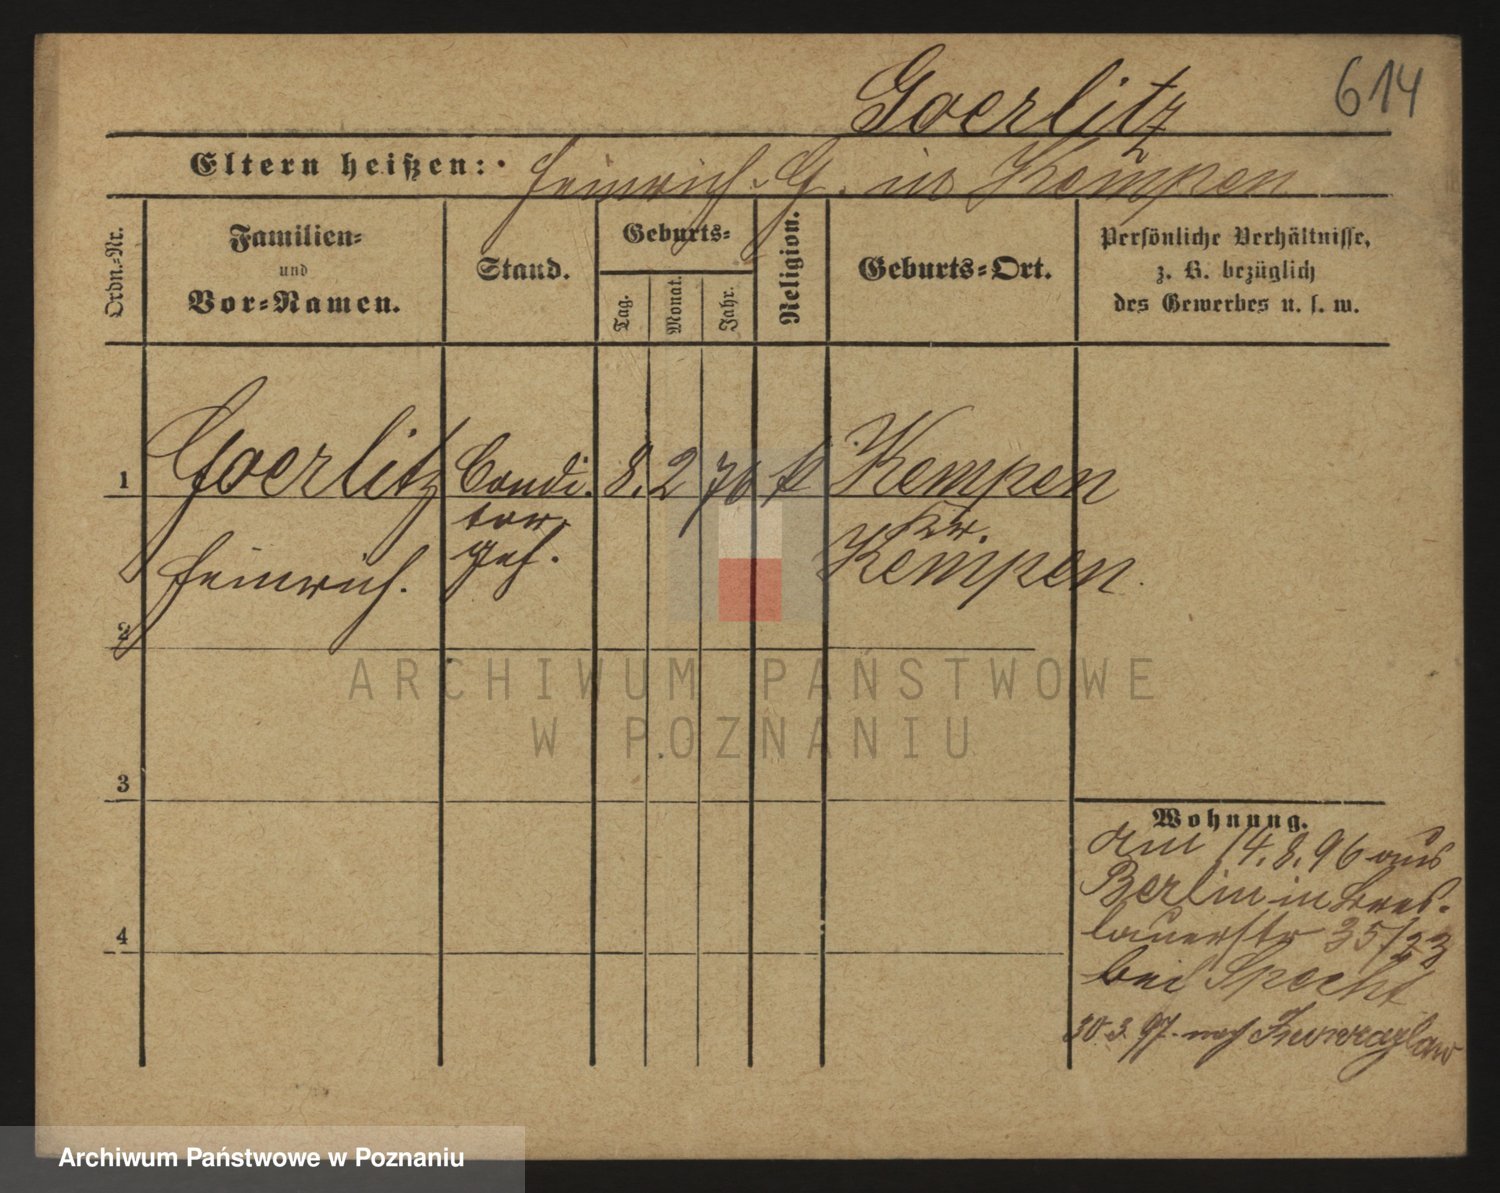 614
Goerlitz
Eltern heißen: Heinrich G. in Kempen
Ordn.-Nr.
Familien-
und
Vor-Namen.
Stand.
Geburts-
Tag.
Monat.
Jahr.
Religion.
Geburts-Ort.
Persönliche Verhältnisse,
z. B. bezüglich
des Gewerbes u. s. w.
1 Goerlitz Condi. 8. 2 70 k Kempen
tor
geh.
Kr.
Heinrich. Kempen
2
3
4
ARCHIWUM PAŃSTWOWE
W POZNANIU
Wohnung.
am 14.8.96 aus
Berlin in Bres-
lauerstr 35/23
bei Specht
30.3.97. nach Inowrazlaw
Archiwum Państwowe w Poznaniu